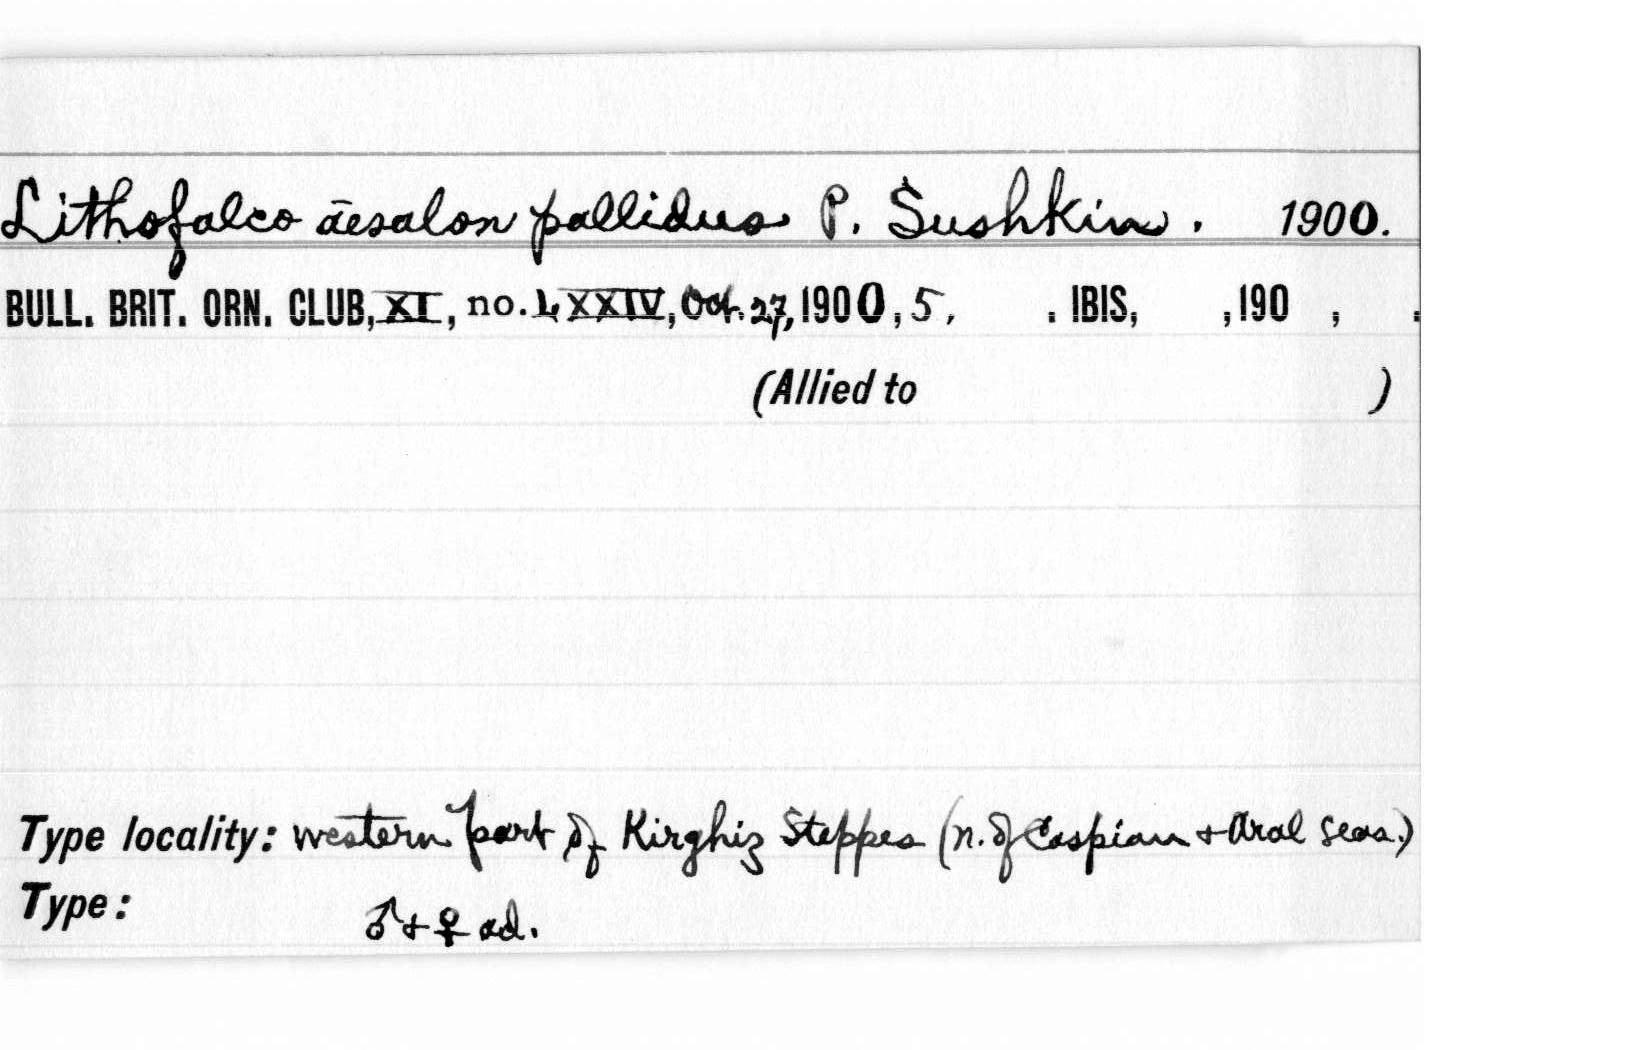 Lithofalco äesalon pallidus P. Sushkin. 1900.
BULL. BRIT. ORN. CLUB, XI, no. LXXIV, Oct. 27, 1900, 5, . IBIS, , 190 , .
(Allied to )
Type locality: western part of Kirghiz Steppes (n. of Caspian + Aral Seas.)
Type: ♂ + ♀ ad.